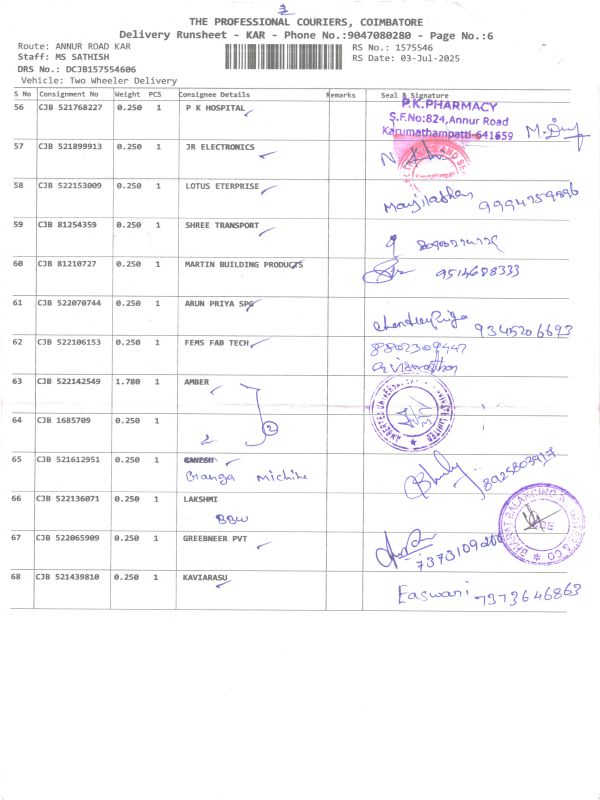 THE PROFESSIONAL COURIERS, COIMBATORE
Delivery Runsheet - KAR - Phone No.:9047080280 - Page No.:6
Route: ANNUR ROAD KAR RS No.: 1575546
Staff: MS SATHISH RS Date: 03-Jul-2025
DRS No.: DCJB157554606
Vehicle: Two Wheeler Delivery
S No Consignment No Weight PCS Consignee Details Remarks Seal & Signature
56 CJB 521768227 0.250 1 P K HOSPITAL
P.K.PHARMACY
S.F.No:824,Annur Road
Karumathampatti-641659
57 CJB 521899913 0.250 1 JR ELECTRONICS
58 CJB 522153009 0.250 1 LOTUS ETERPRISE
59 CJB 81254359 0.250 1 SHREE TRANSPORT
60 CJB 81210727 0.250 1 MARTIN BUILDING PRODUCTS
9514688333
61 CJB 522070744 0.250 1 ARUN PRIYA SPG
9345206693
62 CJB 522106153 0.250 1 FEMS FAB TECH
8802309447
63 CJB 522142549 1.780 1 AMBER
64 CJB 1685709 0.250 1
2
65 CJB 521612951 0.250 1 GANESH
Ganga
8925803917
66 CJB 522136071 0.250 1 LAKSHMI
BBW
67 CJB 522065909 0.250 1 GREEBNEER PVT
68 CJB 521439810 0.250 1 KAVIARASU
Easwari 7373646863